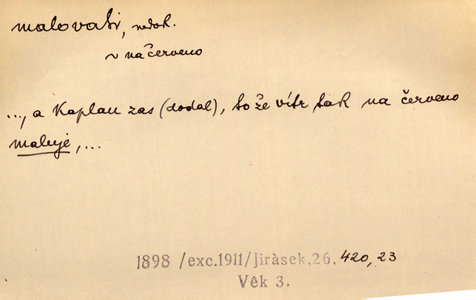 malovati, nedok.
v načerveno
..., a Kaplan zas (dodal), to že vítr tak na červeno
maluje, ...
1898 /exc.1911/Jiràsek,26, 420, 23
Věk 3.